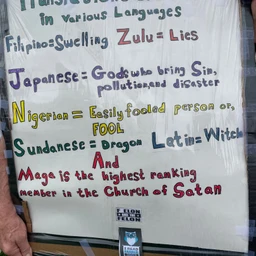 in Various Languages
Filipino=Swelling Zulu= Lies
Japanese= Gods who bring Sin,
pollution,and disaster
Nigerian = Easily fooled person or,
FOOL
Sundanese = Dragon Latin= Witch
And
Maga is the highest ranking
member in the Church of Satan
FELON